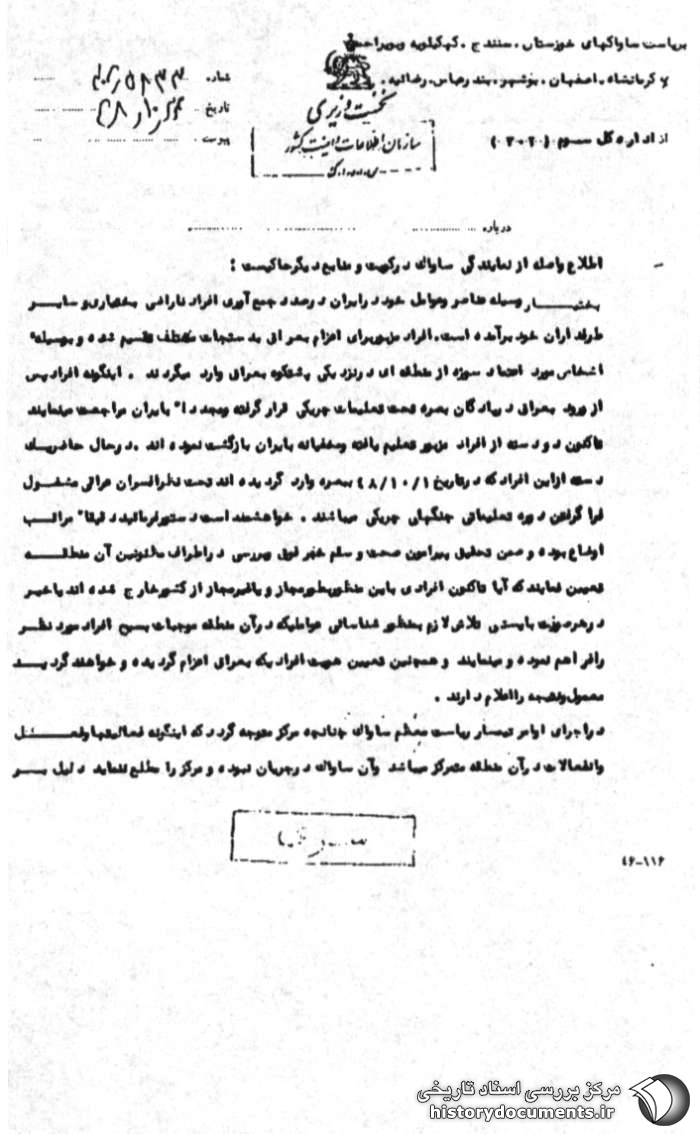 بریاست ساواکهای خوزستان، سنندج، کهکیلویه وبویراحمد
کرمانشاه، اصفهان، بوشهر، بندرعباس، رضائیه.
شماره
تاریخ
پیوست
نخست وزیری
سازمان اطلاعات و امنیت کشور
س.ا.و.ا.ک
از اداره کل سوم (۳۰۲)
درباره
اطلاع واصله از نمایندگی ساواک در کویت و منابع دیگر حاکیست :
بختیار بوسیله عناصر وعوامل خود در ایران درصدد جمع آوری افراد ناراضی بختیاری و سایر
طرفداران خود برآمده است. افراد مزبور برای اعزام بعراق به دستجات مختلف تقسیم شده و بوسیله
اشخاص مورد اعتماد سوژه از منطقه ای در نزدیکی پشتکوه بعراق وارد میگردند . اینگونه افراد پس
از ورود بعراق در پادگان بصره تحت تعلیمات چریکی قرار گرفته ومجددا" بایران مراجعت مینمایند
تاکنون دو دسته از افراد مزبور تعلیم یافته ومخفیانه بایران بازگشت نموده اند . درحال حاضر یک
دسته از این افراد که در تاریخ ۴۸/۱۰/۱ ببصره وارد گردیده اند تحت نظر افسران عراقی مشغول
فرا گرفتن دوره تعلیماتی جنگهای چریکی میباشند . خواهشمند است دستور فرمائید دقیقا" مراقب
اوضاع بوده و ضمن تحقیق پیرامون صحت و سقم خبر فوق وبررسی در اطراف مظنونین آن منطقه
تعیین نمایند که آیا تاکنون افرادی باین منظور بطور مجاز و یا غیرمجاز از کشور خارج شده اند یا خیر
در هر صورت بایستی تلاش لازم بمنظور شناسائی عواملیکه در آن منطقه موجبات بسیج افراد مورد نظر
را فراهم نموده و مینمایند و همچنین تعیین هویت افرادیکه بعراق اعزام گردیده و خواهند گردید
معمول ونتیجه را اعلام دارند .
در اجرای اوامر تیمسار ریاست معظم ساواک چنانچه مرکز متوجه گردد که اینگونه فعالیتها وفعل
وانفعالات در آن منطقه متمرکز میباشد وآن ساواک در جریان نبوده و مرکز را مطلع ننماید دلیل بر
۴۶-۱۱۶
مرکز بررسی اسناد تاریخی
historydocuments.ir